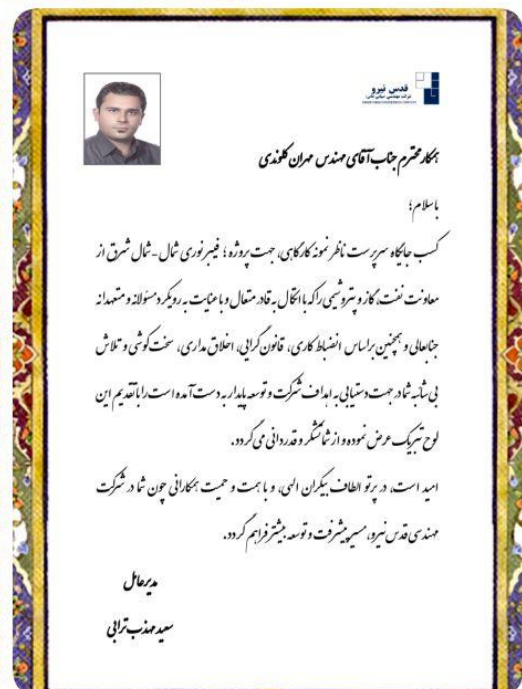 قدس نیرو
همکار محترم جناب آقای مهندس مهران کلوندی
باسلام؛
کسب جایگاه سرپرست ناظر نمونه کارگاهی، جهت پروژه ؛ فیبرنوری شمال-شمال شرق از
معاونت نفت، گاز و پتروشیمی را که با اتکال به قادر متعال و با عنایت به رویکرد مسئولانه و متعهدانه
جنابعالی و همچنین براساس انضباط کاری، قانون گرایی، اخلاق مداری، سخت کوشی و تلاش
بی شائبه شما در جهت دستیابی به اهداف شرکت و توسعه پایدار به دست آمده است را با تقدیم این
لوح تبریک عرض نموده و از شما تشکر و قدردانی می گردد.
امید است، در پرتو الطاف بیکران الهی، و با همت و حمیت همکارانی چون شما در شرکت
مهندسی قدس نیرو، مسیر پیشرفت و توسعه بیشتر فراهم گردد.
مدیرعامل
سعید مهذب ترابی